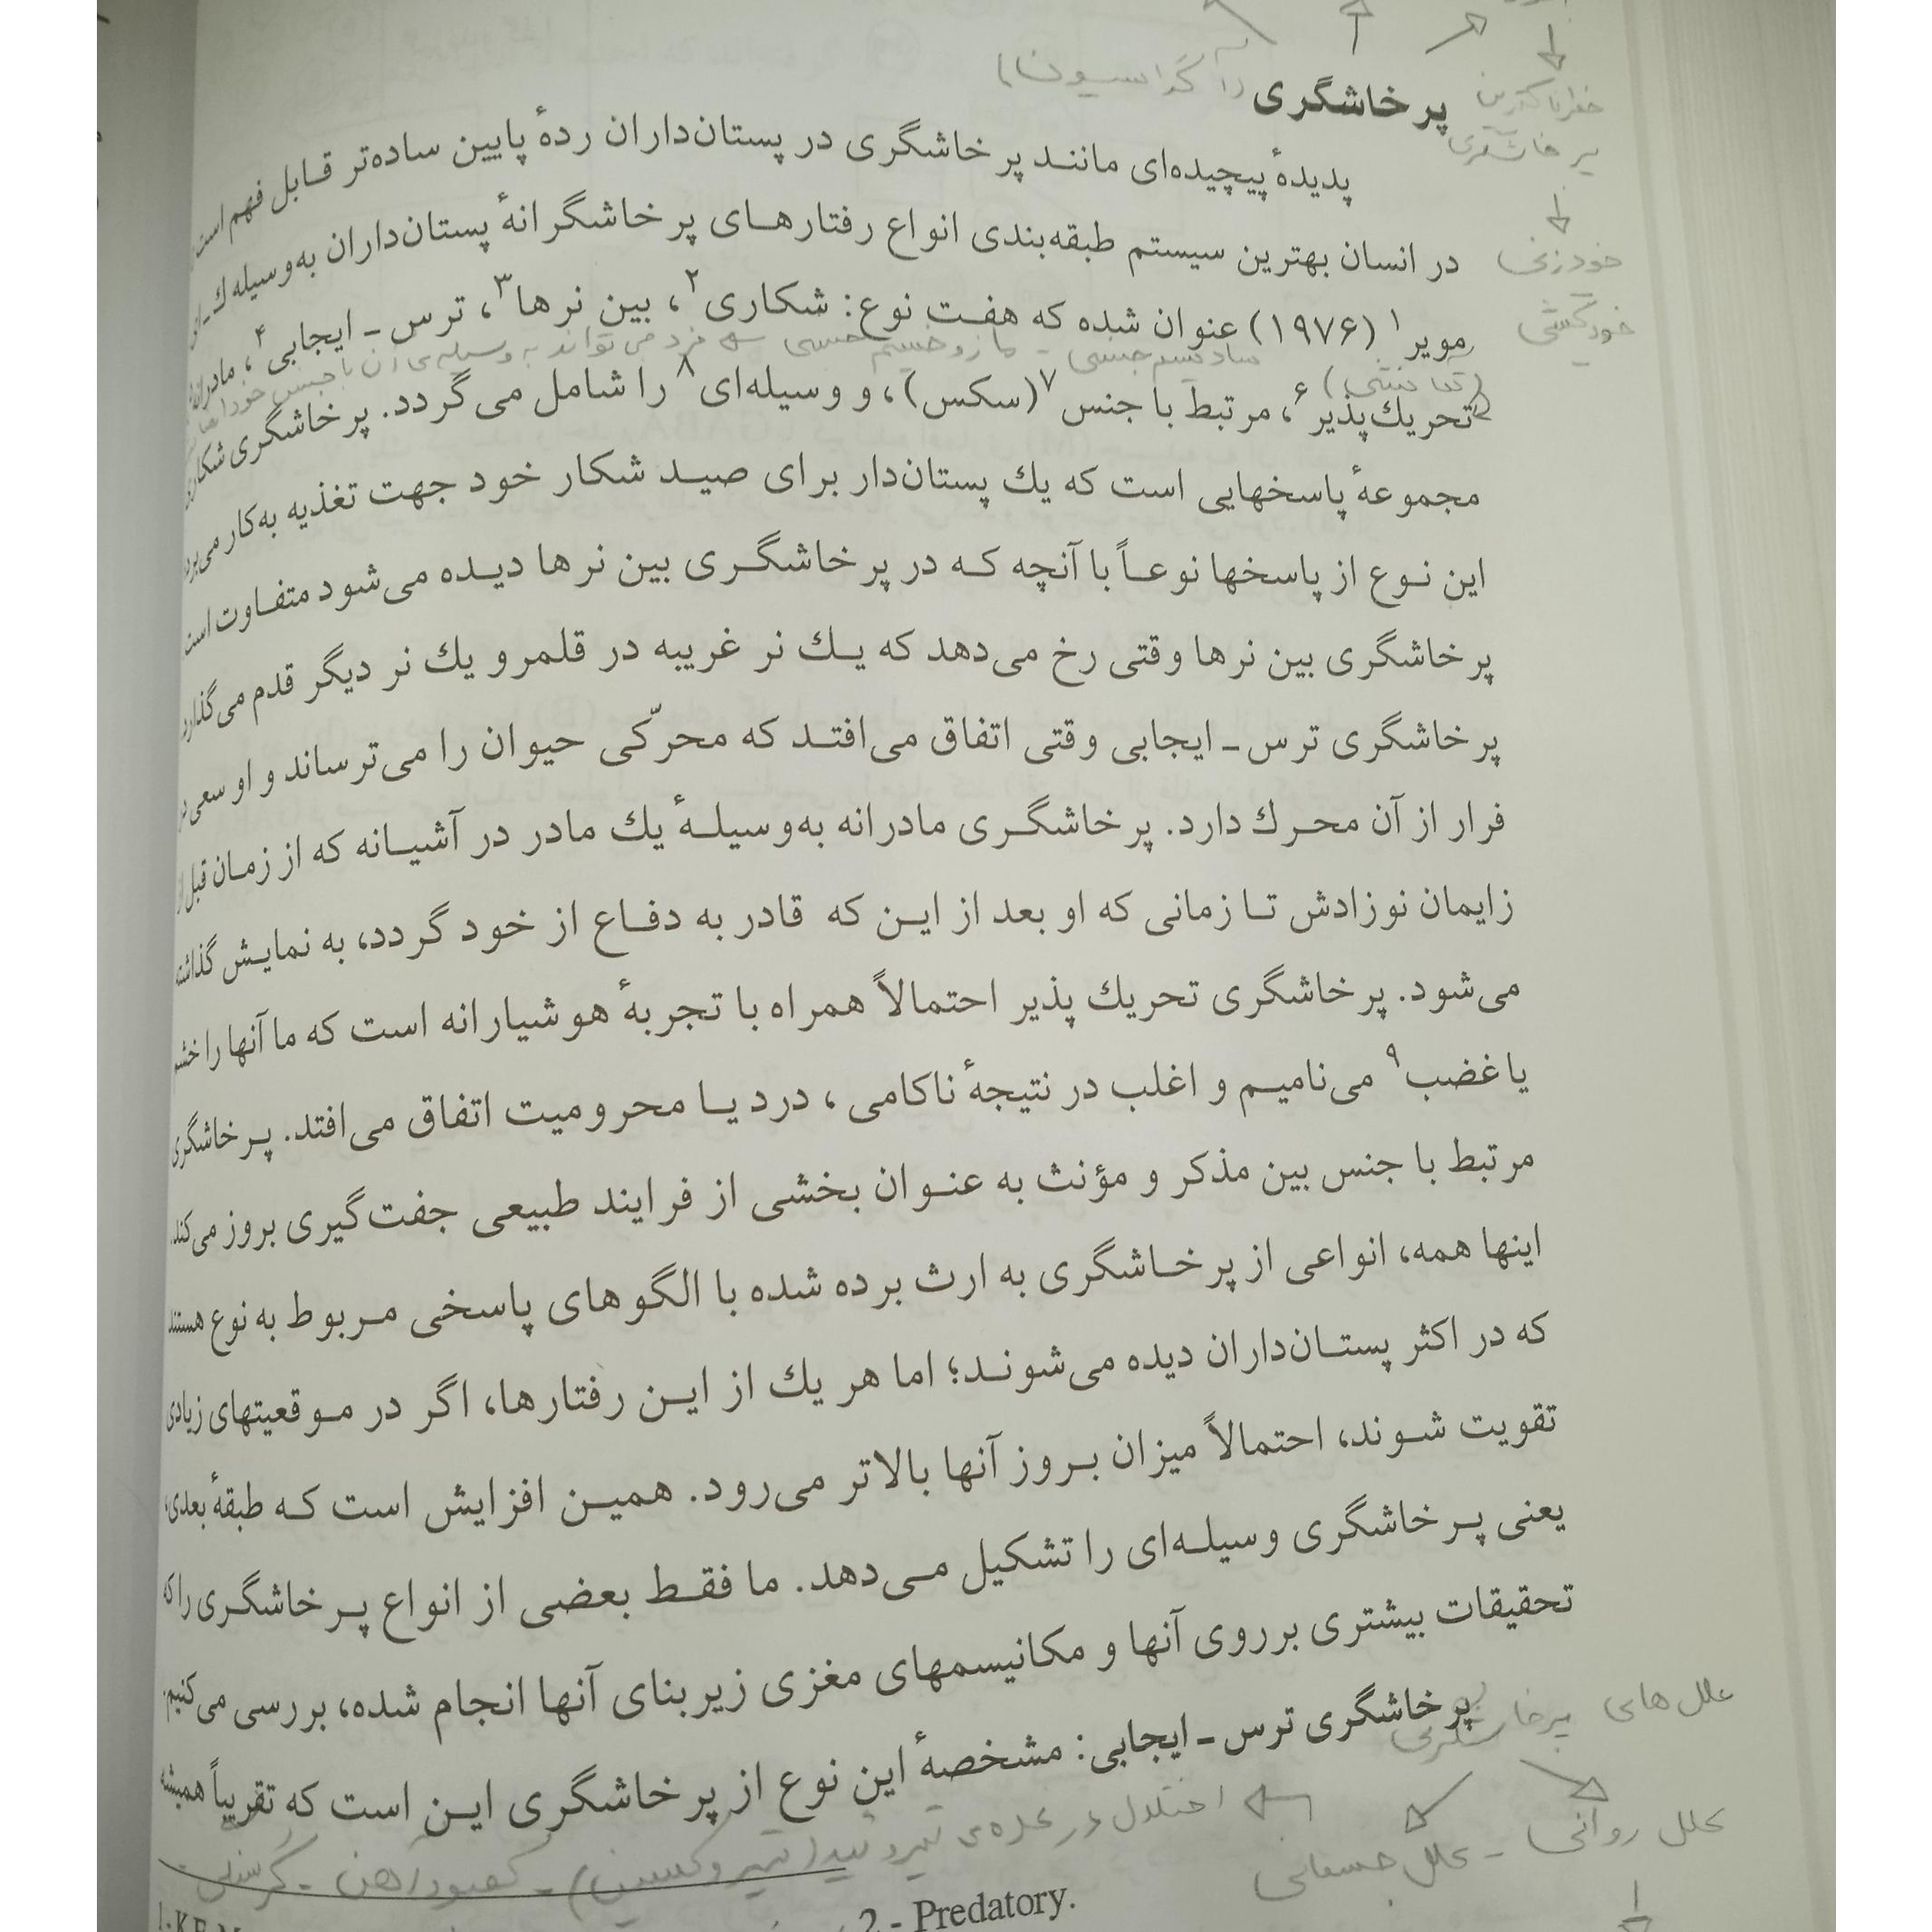 پرخاشگری (آگراسیون)
خطرناک‌ترین
پرخاشگری
خودزنی
خودکشی
پدیدهٔ پیچیده‌ای مانند پرخاشگری در پستان‌داران ردهٔ پایین ساده‌تر قابل فهم است
در انسان بهترین سیستم طبقه‌بندی انواع رفتارهای پرخاشگرانهٔ پستان‌داران به‌وسیله ك
مویر۱ (۱۹۷۶) عنوان شده که هفت نوع: شکاری۲، بین نرها۳، ترس ـ ایجابی۴، مادرانه
سادیسم جنسی - مازوخیسم جنسی فرد می‌تواند به وسیله‌ی آن با جنس خود
تحریك‌پذیر۶، مرتبط با جنس۷ (سکس)، و وسیله‌ای۸ را شامل می‌گردد. پرخاشگری شکاری
مجموعهٔ پاسخهایی است که یك پستان‌دار برای صید شکار خود جهت تغذیه به‌کار می‌برد
این نوع از پاسخها نوعاً با آنچه که در پرخاشگری بین نرها دیده می‌شود متفاوت است
پرخاشگری بین نرها وقتی رخ می‌دهد که یك نر غریبه در قلمرو یك نر دیگر قدم می‌گذارد
پرخاشگری ترس ـ ایجابی وقتی اتفاق می‌افتد که محرّکی حیوان را می‌ترساند و او سعی
فرار از آن محرك دارد. پرخاشگری مادرانه به‌وسیلهٔ یك مادر در آشیانه که از زمان قبل از
زایمان نوزادش تا زمانی که او بعد از این که قادر به دفاع از خود گردد، به نمایش گذاشته
می‌شود. پرخاشگری تحریك پذیر احتمالاً همراه با تجربهٔ هوشیارانه است که ما آنها را خشم
یا غضب۹ می‌نامیم و اغلب در نتیجهٔ ناکامی، درد یا محرومیت اتفاق می‌افتد. پرخاشگری
مرتبط با جنس بین مذکر و مؤنث به عنوان بخشی از فرایند طبیعی جفت‌گیری بروز می‌کند.
اینها همه، انواعی از پرخاشگری به ارث برده شده با الگوهای پاسخی مربوط به نوع هستند
که در اکثر پستان‌داران دیده می‌شوند؛ اما هر یك از این رفتارها، اگر در موقعیتهای زیادی
تقویت شوند، احتمالاً میزان بروز آنها بالاتر می‌رود. همین افزایش است که طبقهٔ بعدی،
یعنی پرخاشگری وسیله‌ای را تشکیل می‌دهد. ما فقط بعضی از انواع پرخاشگری را که
تحقیقات بیشتری برروی آنها و مکانیسمهای مغزی زیربنای آنها انجام شده، بررسی می‌کنیم.
علل‌های پرخاشگری
پرخاشگری ترس ـ ایجابی: مشخصهٔ این نوع از پرخاشگری این است که تقریباً همیشه
علل روانی - علل جسمانی
اختلال در غده‌ی تیروئید (تیروکسین) - کمبود آهن - گرسنگی
2 - Predatory.